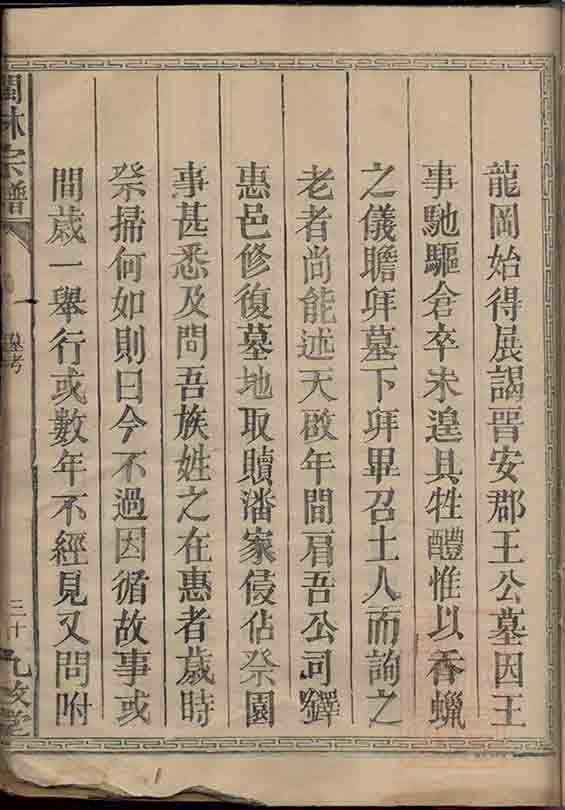 龍岡始得展謁晉安郡王公墓因王
事馳驅倉卒未遑具牲醴惟以香蠟
之儀瞻拜墓下拜畢召土人而詢之
老者尚能述天啟年間眉吾公司鐸
惠邑修復墓地取贖潘家侵佔祭園
事甚悉及問吾族姓之在惠者歲時
祭掃何如則曰今不過因循故事或
間歲一舉行或數年不經見又問附
閩林宗譜
墓考
三十